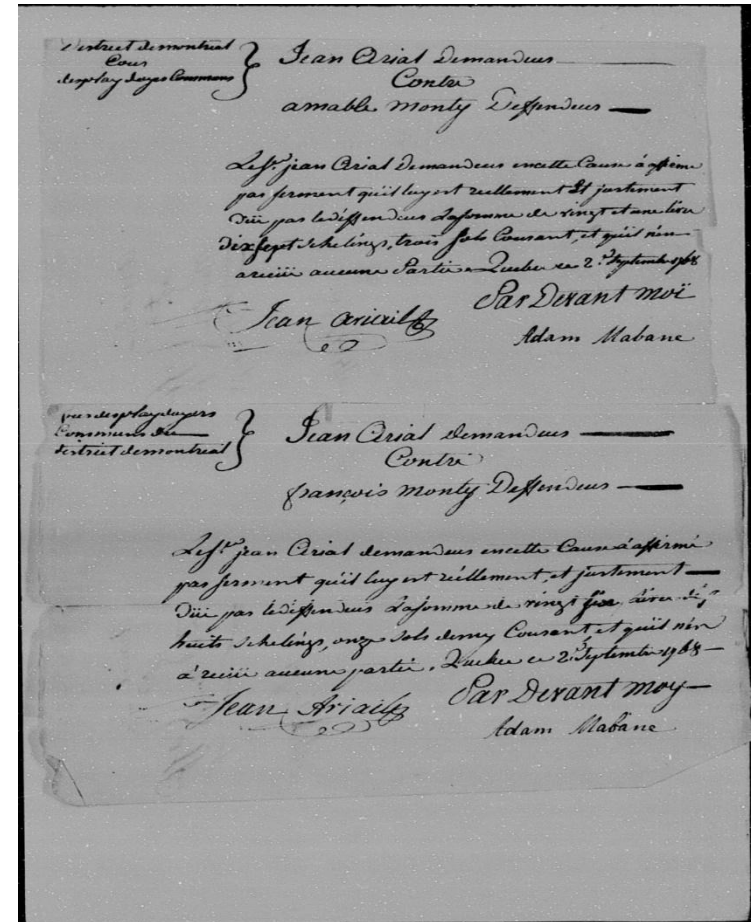 District de montreal
Cour
desplaydoyes Commons
Jean Arial Demandeur
Contre
amable monty Deffendeur
Le Sr. jean Arial Demandeur encette Cause à affirmé
par serment qüil luy est reellement Et justement
Düe par ledéffendeur Lasomme de vingt et une livre
dix sept schelings, trois sols Courant, et qüil n'en
a reciii aucune Partie Quebec ce 2d. Septembre 1768
Par Devant moï
Jean Ariail
Adam Mabane
desplaydoyers
Communs du
district demontreal
Jean Arial demandeur
Contre
françois monty Deffendeur
Le Sr. jean Arial demandeur encette Cause à affirmé
par serment qüil luy est réellement, et justement
Düe par ledéffendeur Lasomme de vingt six, Livre dix
huits schelings, onze sols demy Courant, et qüil n'en
à reciii aucune partie. Quebec ce 2d. Septembre 1768
Par Devant moy
Jean Ariail
Adam Mabane